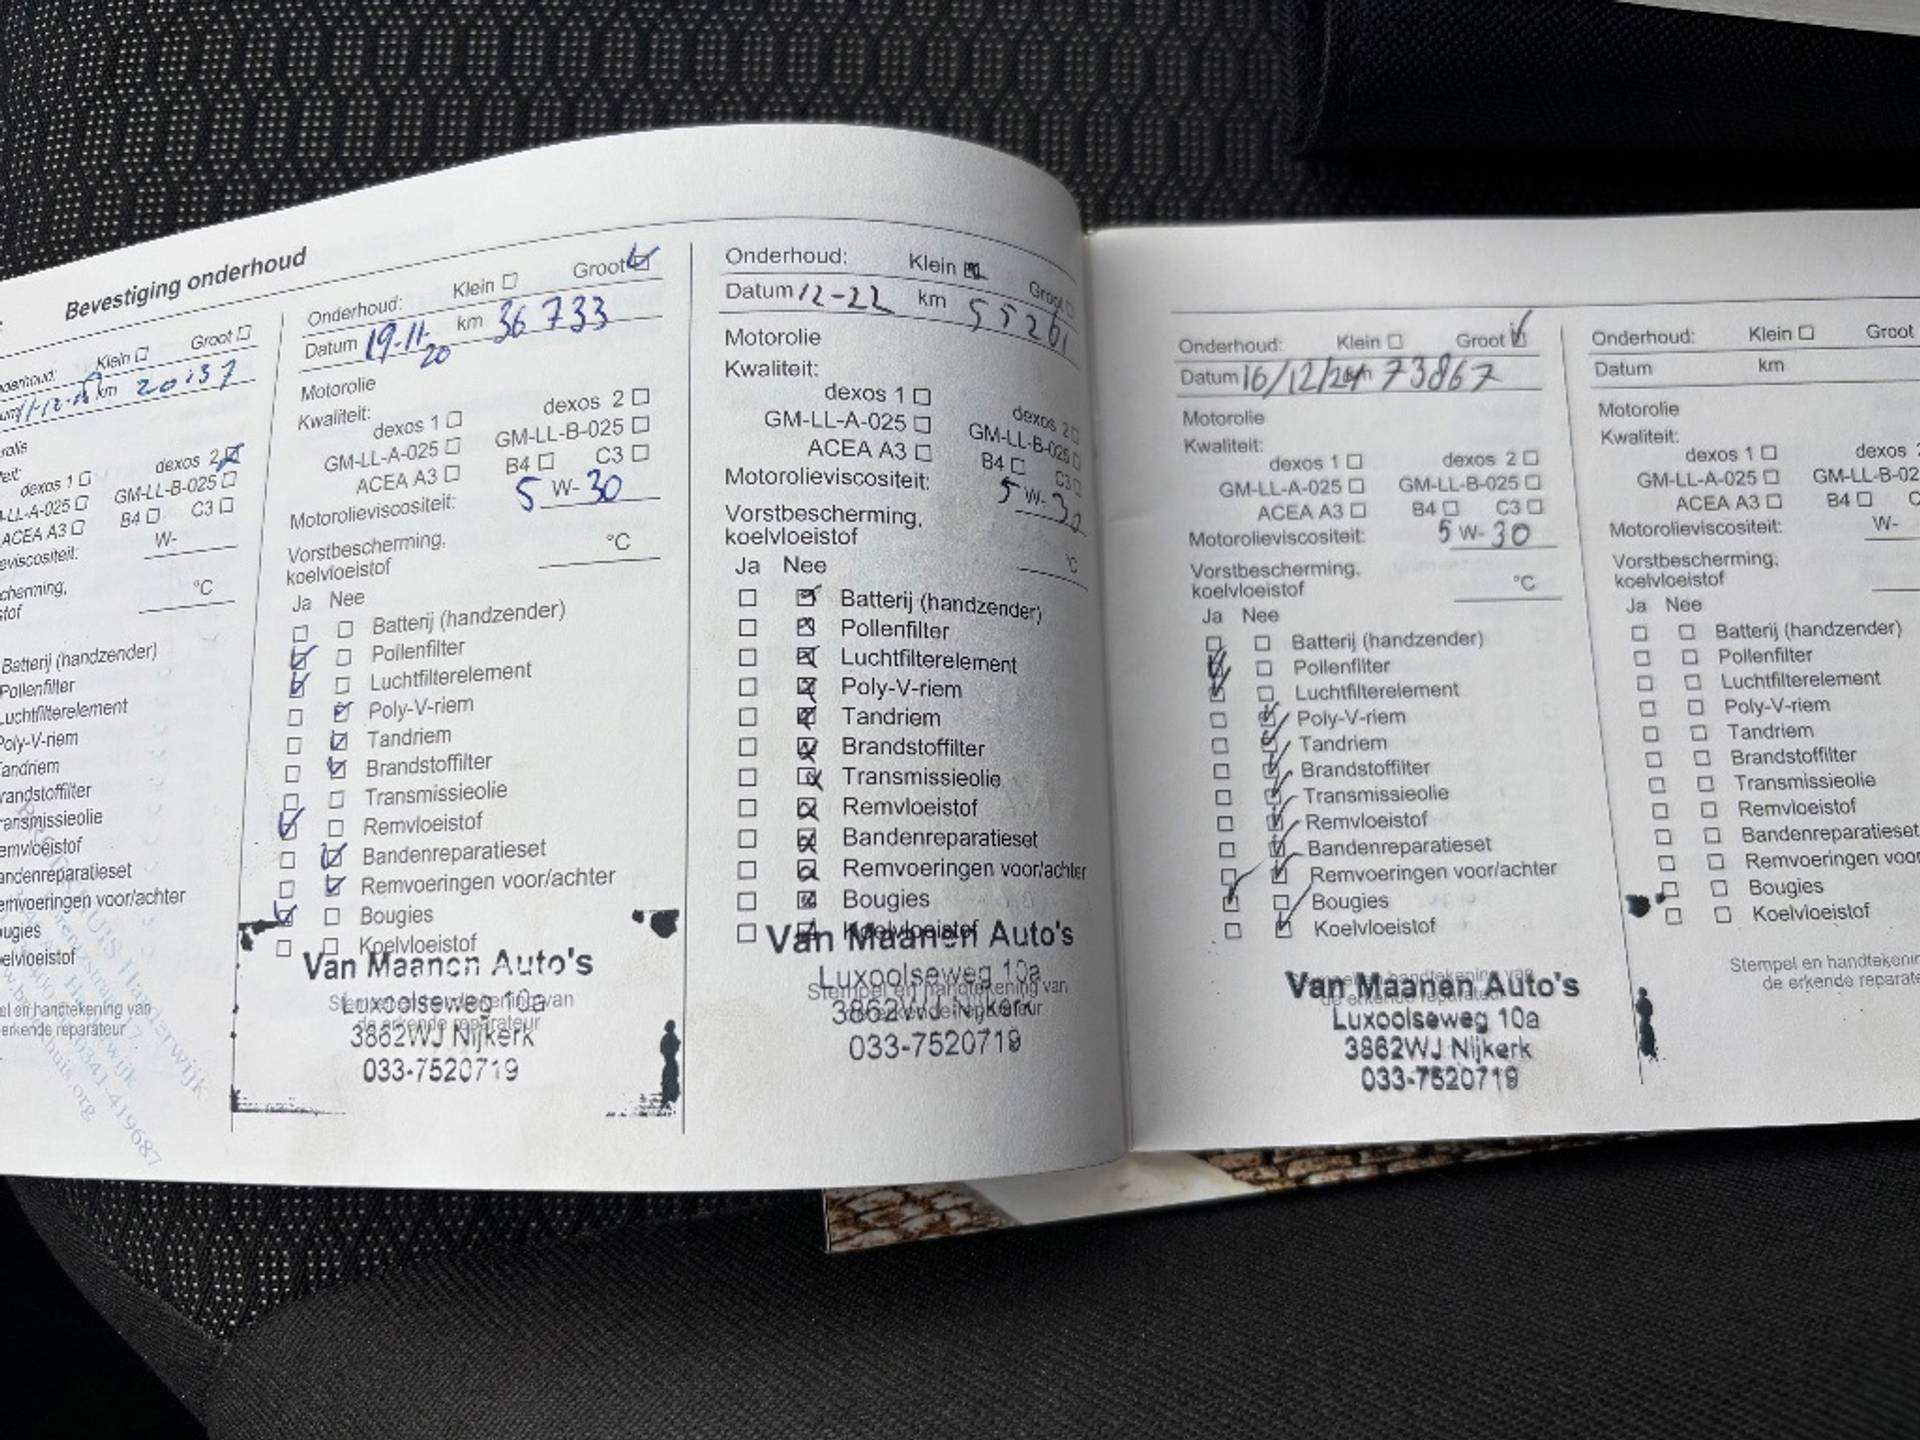 Bevestiging onderhoud
Klein Groot
km 20137
dexos 1 dexos 2
GM-LL-B-025
ACEA A3 B4 C3
W-
°C
Batterij (handzender)
Pollenfilter
Luchtfilterelement
Poly-V-riem
Tandriem
Brandstoffilter
Transmissieolie
Remvloeistof
Bandenreparatieset
Remvoeringen voor/achter
Bougies
Koelvloeistof
erkende reparateur
Onderhoud: Klein Groot
Datum 19-11-20 km 36733
Motorolie
Kwaliteit:
dexos 1 dexos 2
GM-LL-A-025 GM-LL-B-025
ACEA A3 B4 C3
Motorolieviscositeit: 5 W-30
Vorstbescherming,
koelvloeistof °C
Ja Nee
Batterij (handzender)
Pollenfilter
Luchtfilterelement
Poly-V-riem
Tandriem
Brandstoffilter
Transmissieolie
Remvloeistof
Bandenreparatieset
Remvoeringen voor/achter
Bougies
Koelvloeistof
Van Maanen Auto's
Stempel en handtekening van
Luxoolseweg 10a
de erkende reparateur
3862WJ Nijkerk
033-7520719
Onderhoud: Klein Groot
Datum 12-22 km 55261
Motorolie
Kwaliteit:
dexos 1 dexos 2
GM-LL-A-025 GM-LL-B-025
ACEA A3 B4 C3
Motorolieviscositeit: 5 W-30
Vorstbescherming,
koelvloeistof °C
Ja Nee
Batterij (handzender)
Pollenfilter
Luchtfilterelement
Poly-V-riem
Tandriem
Brandstoffilter
Transmissieolie
Remvloeistof
Bandenreparatieset
Remvoeringen voor/achter
Bougies
Koelvloeistof
Van Maanen Auto's
Luxoolseweg 10a
Stempel en handtekening van
3862WJ Nijkerk
033-7520719
Onderhoud: Klein Groot
Datum 16/12/24 73867
Motorolie
Kwaliteit:
dexos 1 dexos 2
GM-LL-A-025 GM-LL-B-025
ACEA A3 B4 C3
Motorolieviscositeit: 5 W-30
Vorstbescherming,
koelvloeistof °C
Ja Nee
Batterij (handzender)
Pollenfilter
Luchtfilterelement
Poly-V-riem
Tandriem
Brandstoffilter
Transmissieolie
Remvloeistof
Bandenreparatieset
Remvoeringen voor/achter
Bougies
Koelvloeistof
Van Maanen Auto's
Luxoolseweg 10a
3862WJ Nijkerk
033-7520719
Onderhoud: Klein Groot
Datum km
Motorolie
Kwaliteit:
dexos 1 dexos
GM-LL-A-025 GM-LL-B-02
ACEA A3 B4
Motorolieviscositeit: W-
Vorstbescherming,
koelvloeistof
Ja Nee
Batterij (handzender)
Pollenfilter
Luchtfilterelement
Poly-V-riem
Tandriem
Brandstoffilter
Transmissieolie
Remvloeistof
Bandenreparatieset
Remvoeringen voor
Bougies
Koelvloeistof
Stempel en handtekenin
de erkende reparate